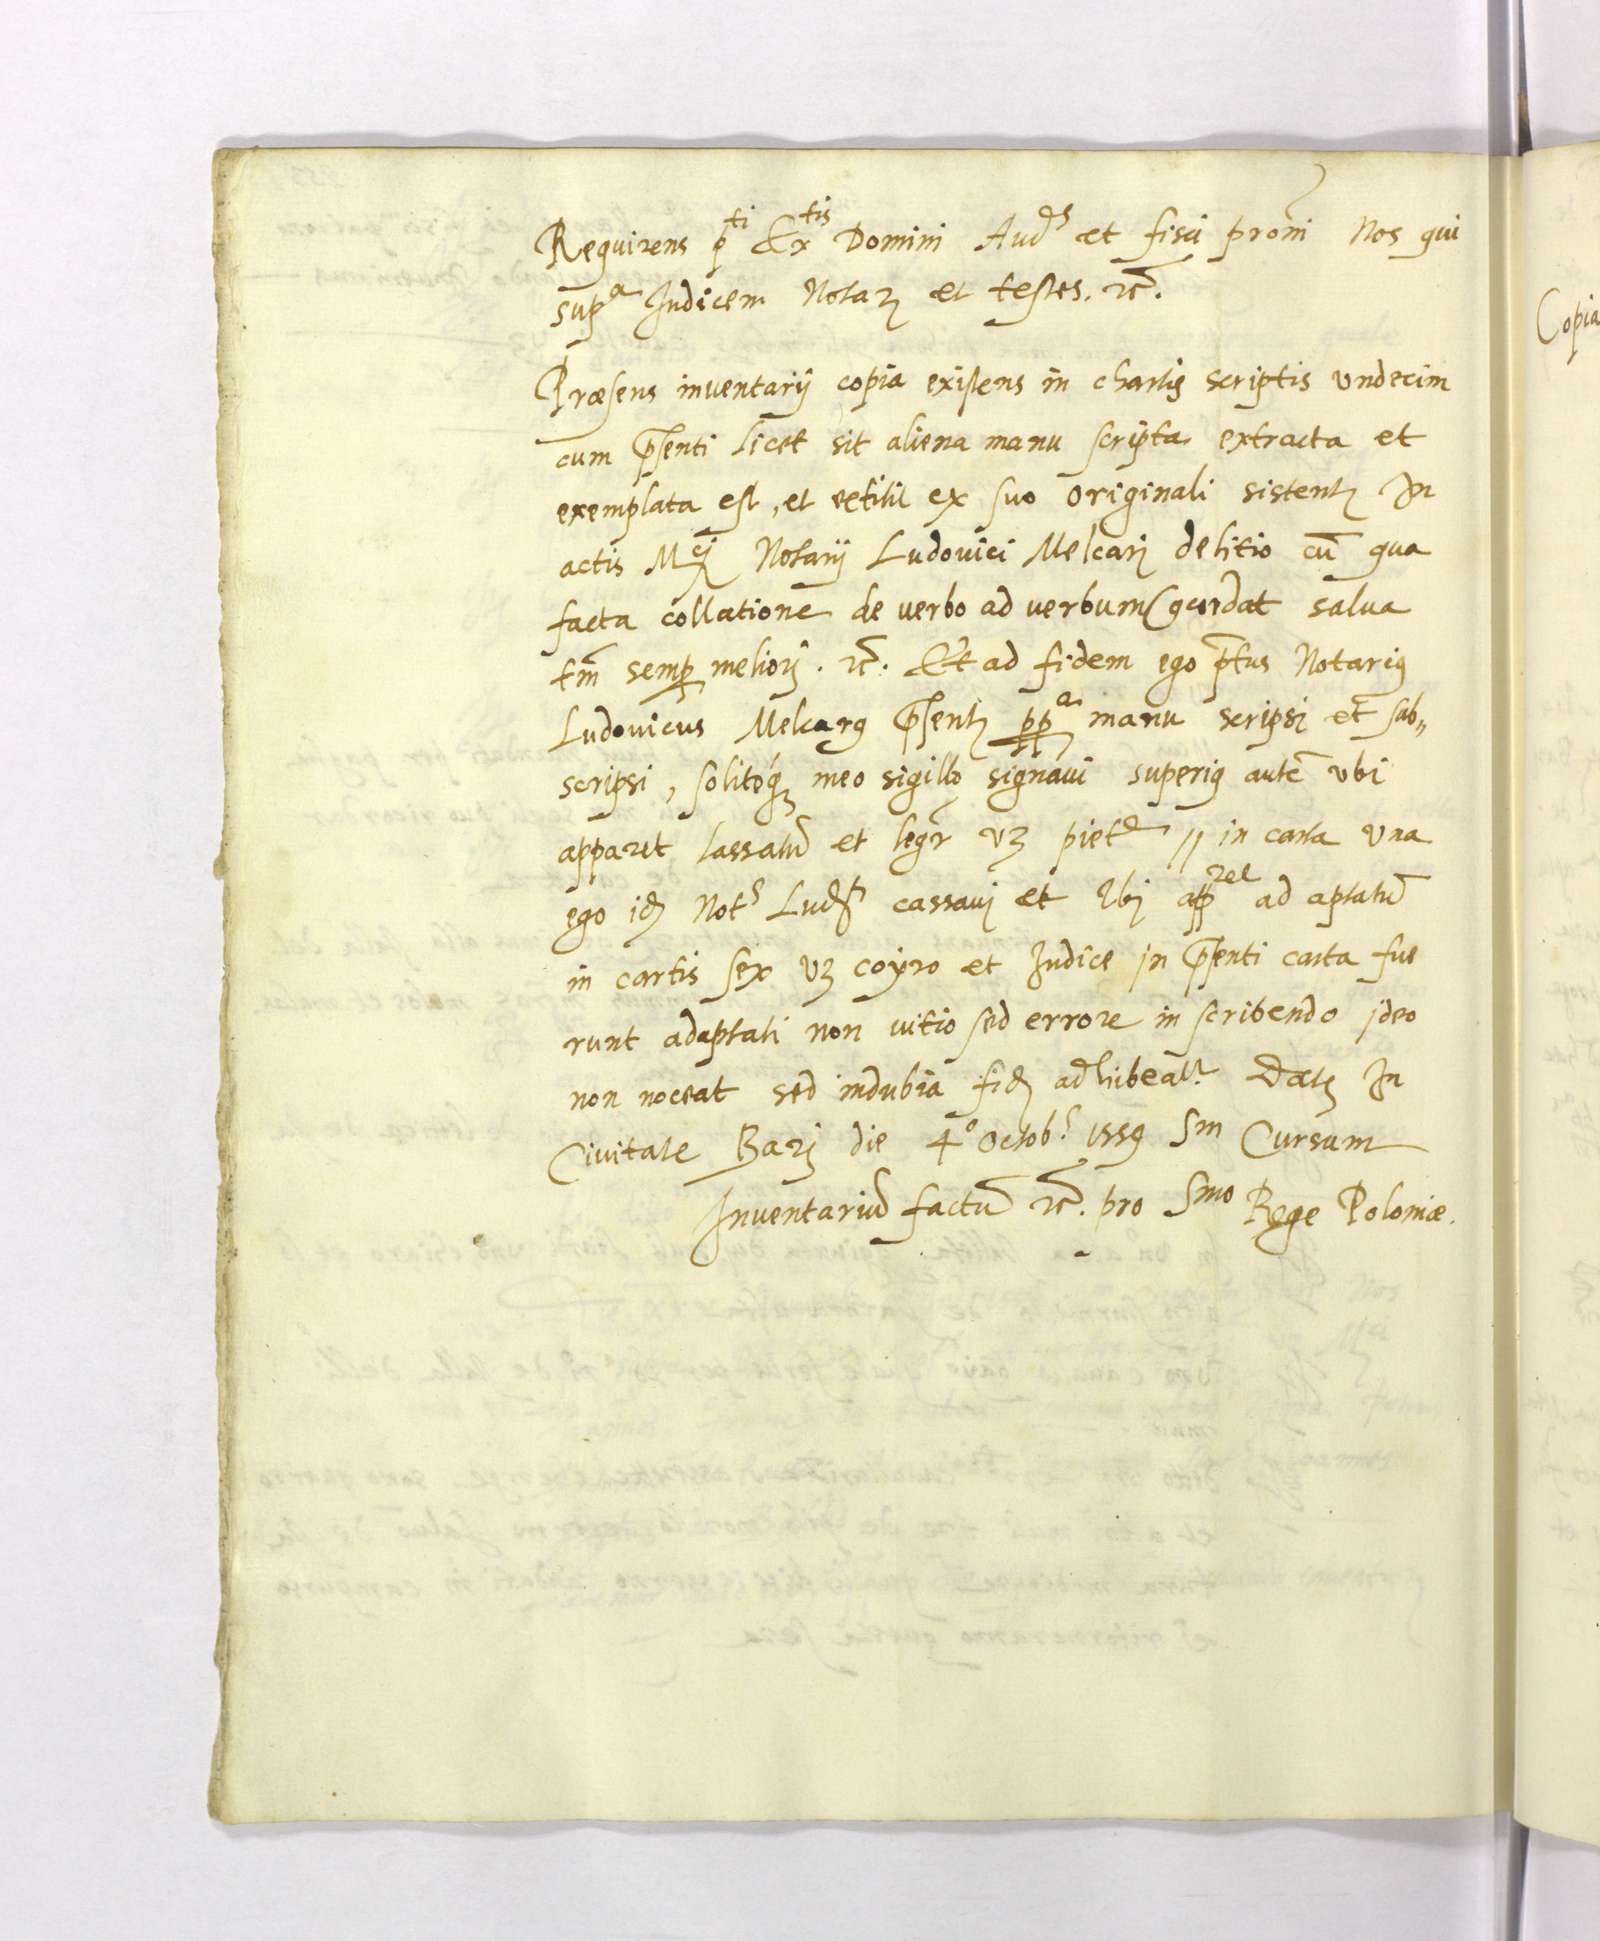 Requirens p^ti Ex^tis Domini Aud^s et fisci pro͠ni Nos qui
sup^a Iudicem Notar̃ et testes. &c̃.
Præsens inventarij copia existens in chartis scriptis vndecim
cum p̃senti licet sit aliena manu scripta extracta et
exemplata est, et ex suo originali sistent̃ In
actis M^ci Notarij Ludovici Melcarj de litio cũ qua
facta collatione de verbo ad verbum cõcordat salua
tm̃ semp̱ meliorj. &c̃. Et ad fidem ego p̃tus Notarius
Ludovicus Melcarus p̃sent̃ pp^a manu scripsi et sub„
scripsi, solitoq; meo sigillo signavi superius autẽ vbi
apparet cassatũ et legr̃ vz piet^a // in carta vna
ego id̃ Not^s Lud^s cassauj et Vbj app^ret ad aptatũ
in cartis sex vz coyro et Iudice jn p̃senti carta fue
runt adaptati non vitio sed errore in scribendo jdeo
non noceat sed indubia fid̃ adhibeat^r. Dat̃ In
Civitate Barj die 4° Octob^s. 1559 Sm̃ Cursum
Inventariũ factũ &c̃. pro S^mo Rege Poloniæ.
Copia